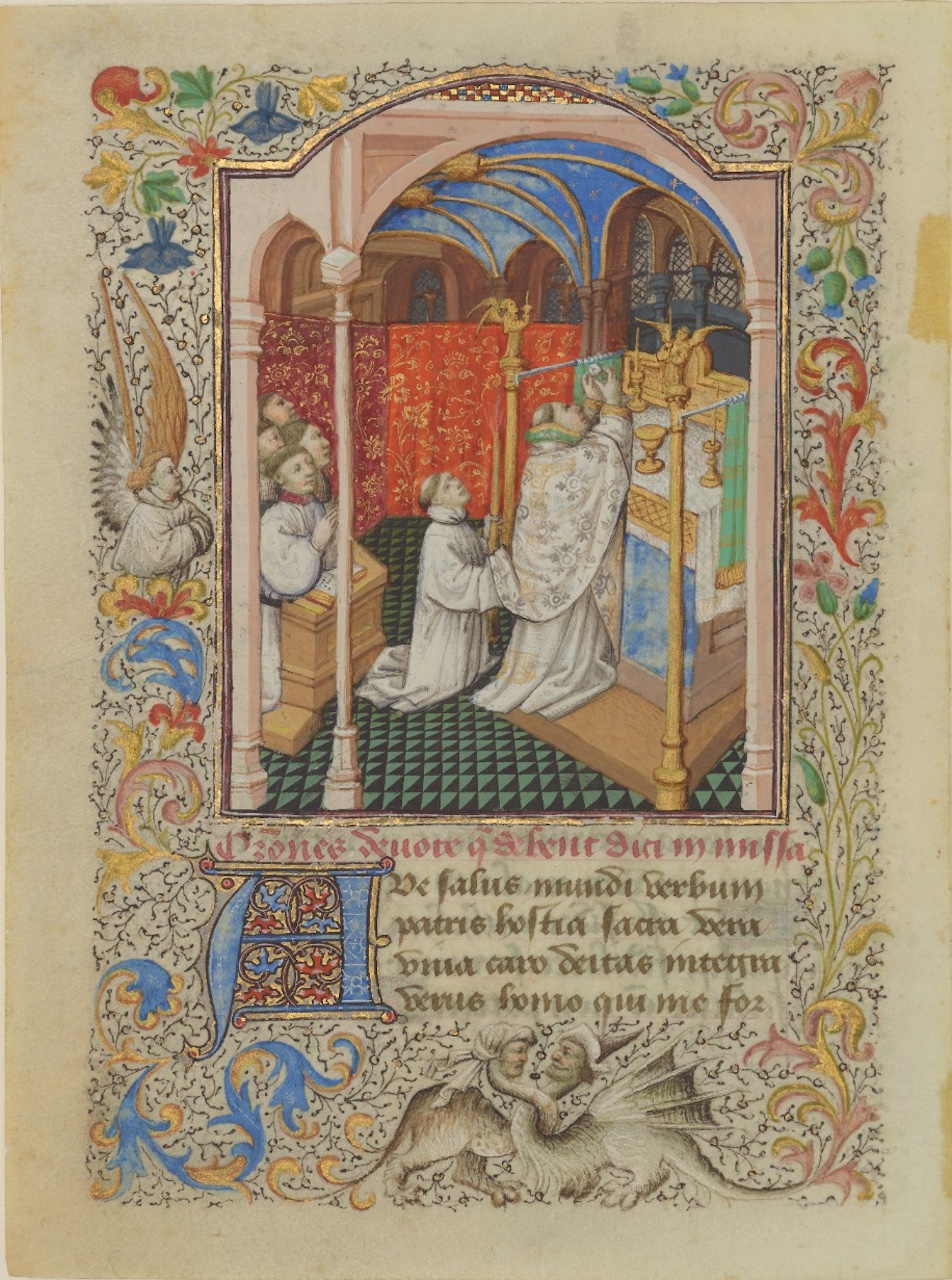 Or̃ones deuote q̃ debent dici in missa
AVe salus mundi verbum
patris hostia sacra vera
viua caro deitas integra
verus homo qui me for